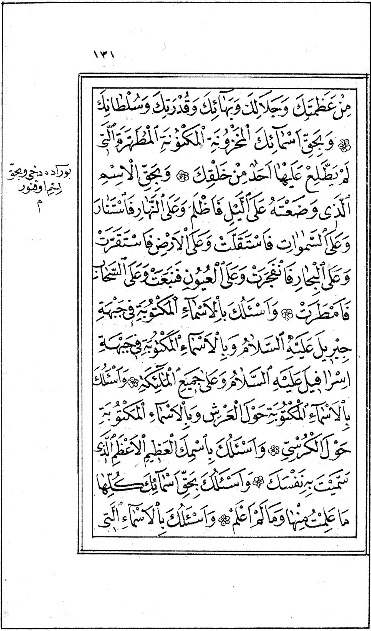 ١٣١
مِنْ عَظَمَتِكَ وَجَلَالِكَ وَبَهَائِكَ وَقُدْرَتِكَ وَسُلْطَانِكَ
وَبِحَقِّ اَسْمَائِكَ الْمَخْزُونَةِ الْمَكْنُونَةِ الْمُطَهَّرَةِ الَّتِي
لَمْ يَطَّلِعْ عَلَيْهَا اَحَدٌ مِنْ خَلْقِكَ وَبِحَقِّ الْاِسْمِ
الَّذِي وَضَعْتَهُ عَلَى الَّيْلِ فَاَظْلَمَ وَعَلَى النَّهَارِ فَاسْتَنَارَ
وَعَلَى السَّمٰوَاتِ فَاسْتَقَلَّتْ وَعَلَى الْاَرْضِ فَاسْتَقَرَّتْ
وَعَلَى الْبِحَارِ فَانْفَجَرَتْ وَعَلَى الْعُيُونِ فَنَبَعَتْ وَعَلَى السَّحَابِ
فَاَمْطَرَتْ وَاَسْئَلُكَ بِالْاَسْمَاءِ الْمَكْتُوبَةِ فِي جَبْهَةِ
جِبْرِيلَ عَلَيْهِ السَّلَامُ وَبِالْاَسْمَاءِ الْمَكْتُوبَةِ فِي جَبْهَةِ
اِسْرَافِيلَ عَلَيْهِ السَّلَامُ وَعَلَى جَمِيعِ الْمَلٰئِكَةِ وَاَسْئَلُكَ
بِالْاَسْمَاءِ الْمَكْتُوبَةِ حَوْلَ الْعَرْشِ وَبِالْاَسْمَاءِ الْمَكْتُوبَةِ
حَوْلَ الْكُرْسِيِّ وَاَسْئَلُكَ بِاسْمِكَ الْعَظِيمِ الْاَعْظَمِ الَّذِي
سَمَّيْتَ بِهِ نَفْسَكَ وَاَسْئَلُكَ بِحَقِّ اَسْمَائِكَ كُلِّهَا
مَا عَلِمْتُ مِنْهَا وَمَا لَمْ اَعْلَمْ وَاَسْئَلُكَ بِالْاَسْمَاءِ الَّتِي
بوراده دخي وبحق